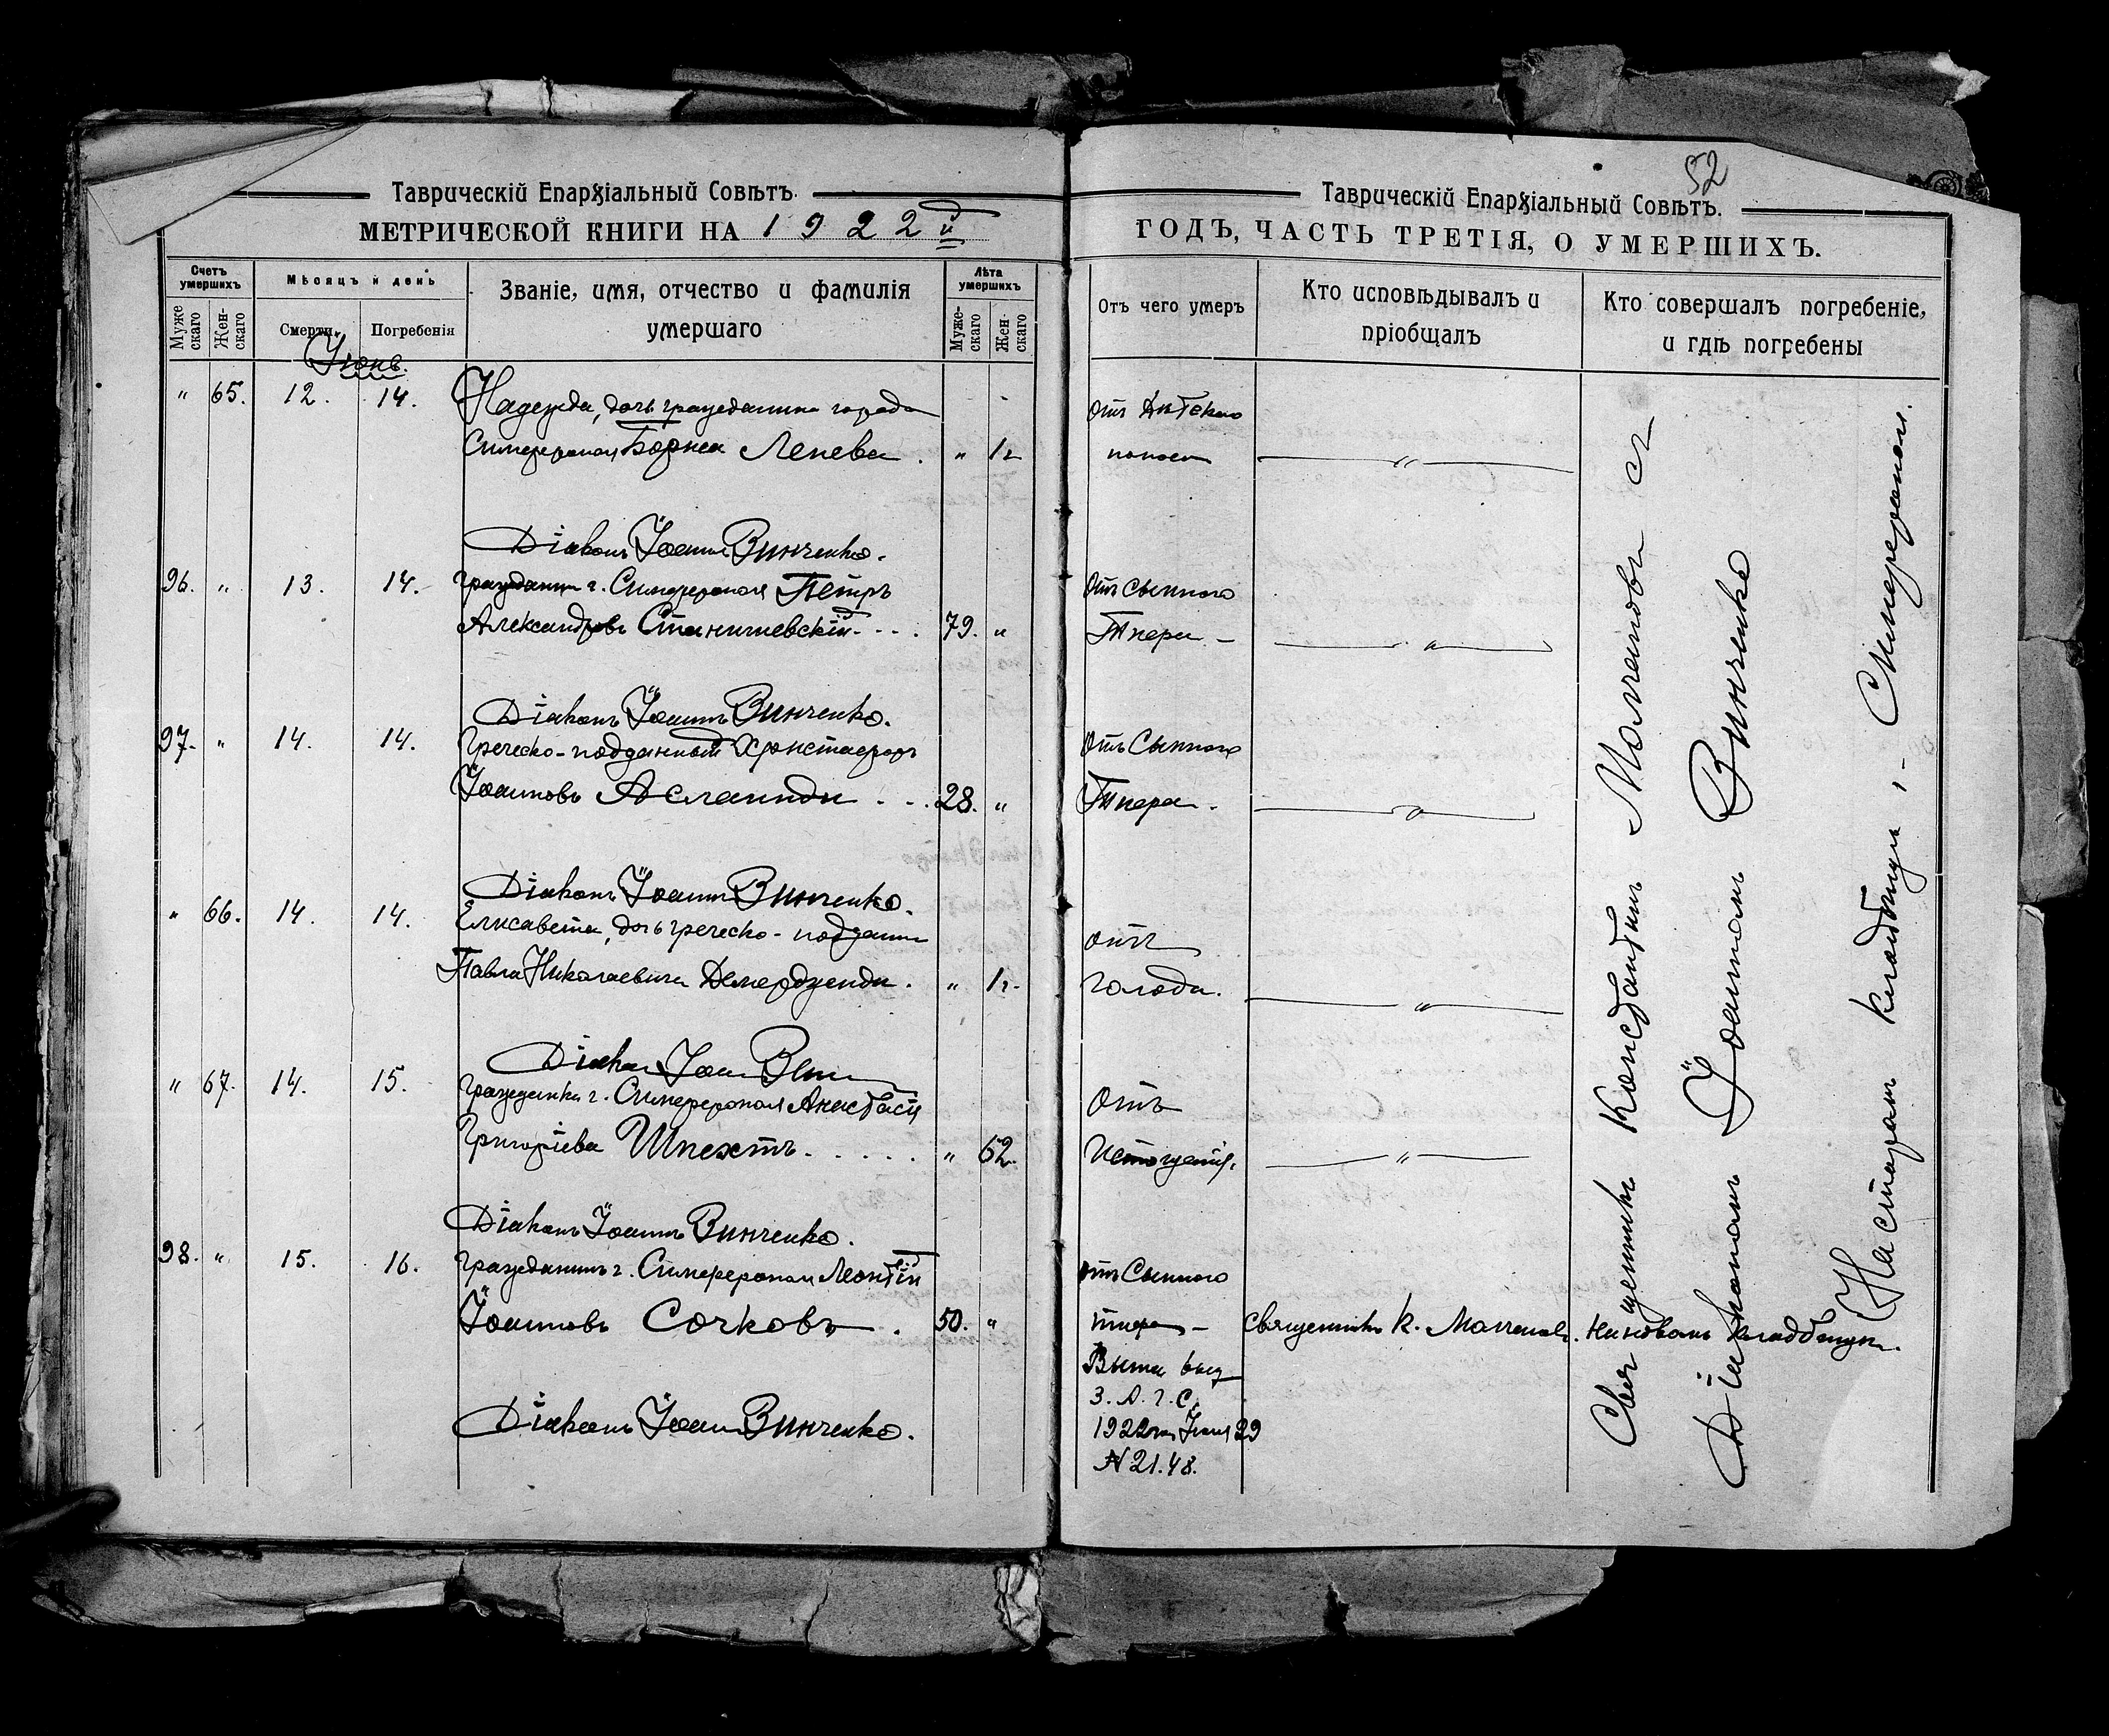 52
Таврическій Епархіальный Совѣтъ.
МЕТРИЧЕСКОЙ КНИГИ НА 1922й
Счетъ умершихъ
Мѣсяцъ и день
Званіе, имя, отчество и фамилія
умершаго
Лѣта умершихъ
Мужескаго
Женскаго
Смерти.
Погребенія
Мужескаго
Женскаго
Іюнь.
" 65. 12. 14. Надежда, дочь гражданина города
Симферополя Бориса Ленева . " 1 г
Діаконъ Іоаннъ Винченко.
96. " 13. 14. Гражданин г. Симферополя Петръ
Александровъ Станишевскій . . . 79. "
Діаконъ Іоаннъ Винченко.
97. " 14. 14. Греческо-подданный Христофоръ
Іоанновъ Асланиди . . . 28. "
Діаконъ Іоаннъ Винченко.
" 66. 14. 14. Елисавета, дочь греческо-поддан
Павла Николаевича Демерджиди . " 1 г.
Діакон Іоан
" 67. 14. 15. Гражданка г. Симферополя Анастасія
Григоріева Шпехтъ . . . . . " 62.
Діаконъ Іоаннъ Винченко.
98. " 15. 16. Гражданинъ г. Симферополя Леонтій
Іоанновъ Сочковъ . 50. "
Діаконъ Іоаннъ Винченко.
Таврическій Епархіальный Совѣтъ.
ГОДЪ, ЧАСТЬ ТРЕТІЯ, О УМЕРШИХЪ.
Отъ чего умеръ
Кто исповѣдывалъ и
пріобщалъ
Кто совершалъ погребеніе,
и гдѣ погребены
отъ Дѣтскаго
поноса "
Отъ Сыпного
Тифа. - "
Отъ Сыпного
Тифа. "
отъ
голода. "
Отъ
Истощенія. "
отъ Сыпного
тифа - Священникъ К. Молчановъ. На новомъ кладбищѣ.
З. А. Г. С.
1922 29
N 21.48.
Священникъ Константинъ Молчановъ съ
Діакономъ Іоанномъ Винченко
На старомъ кладбищѣ, - Симферополя.